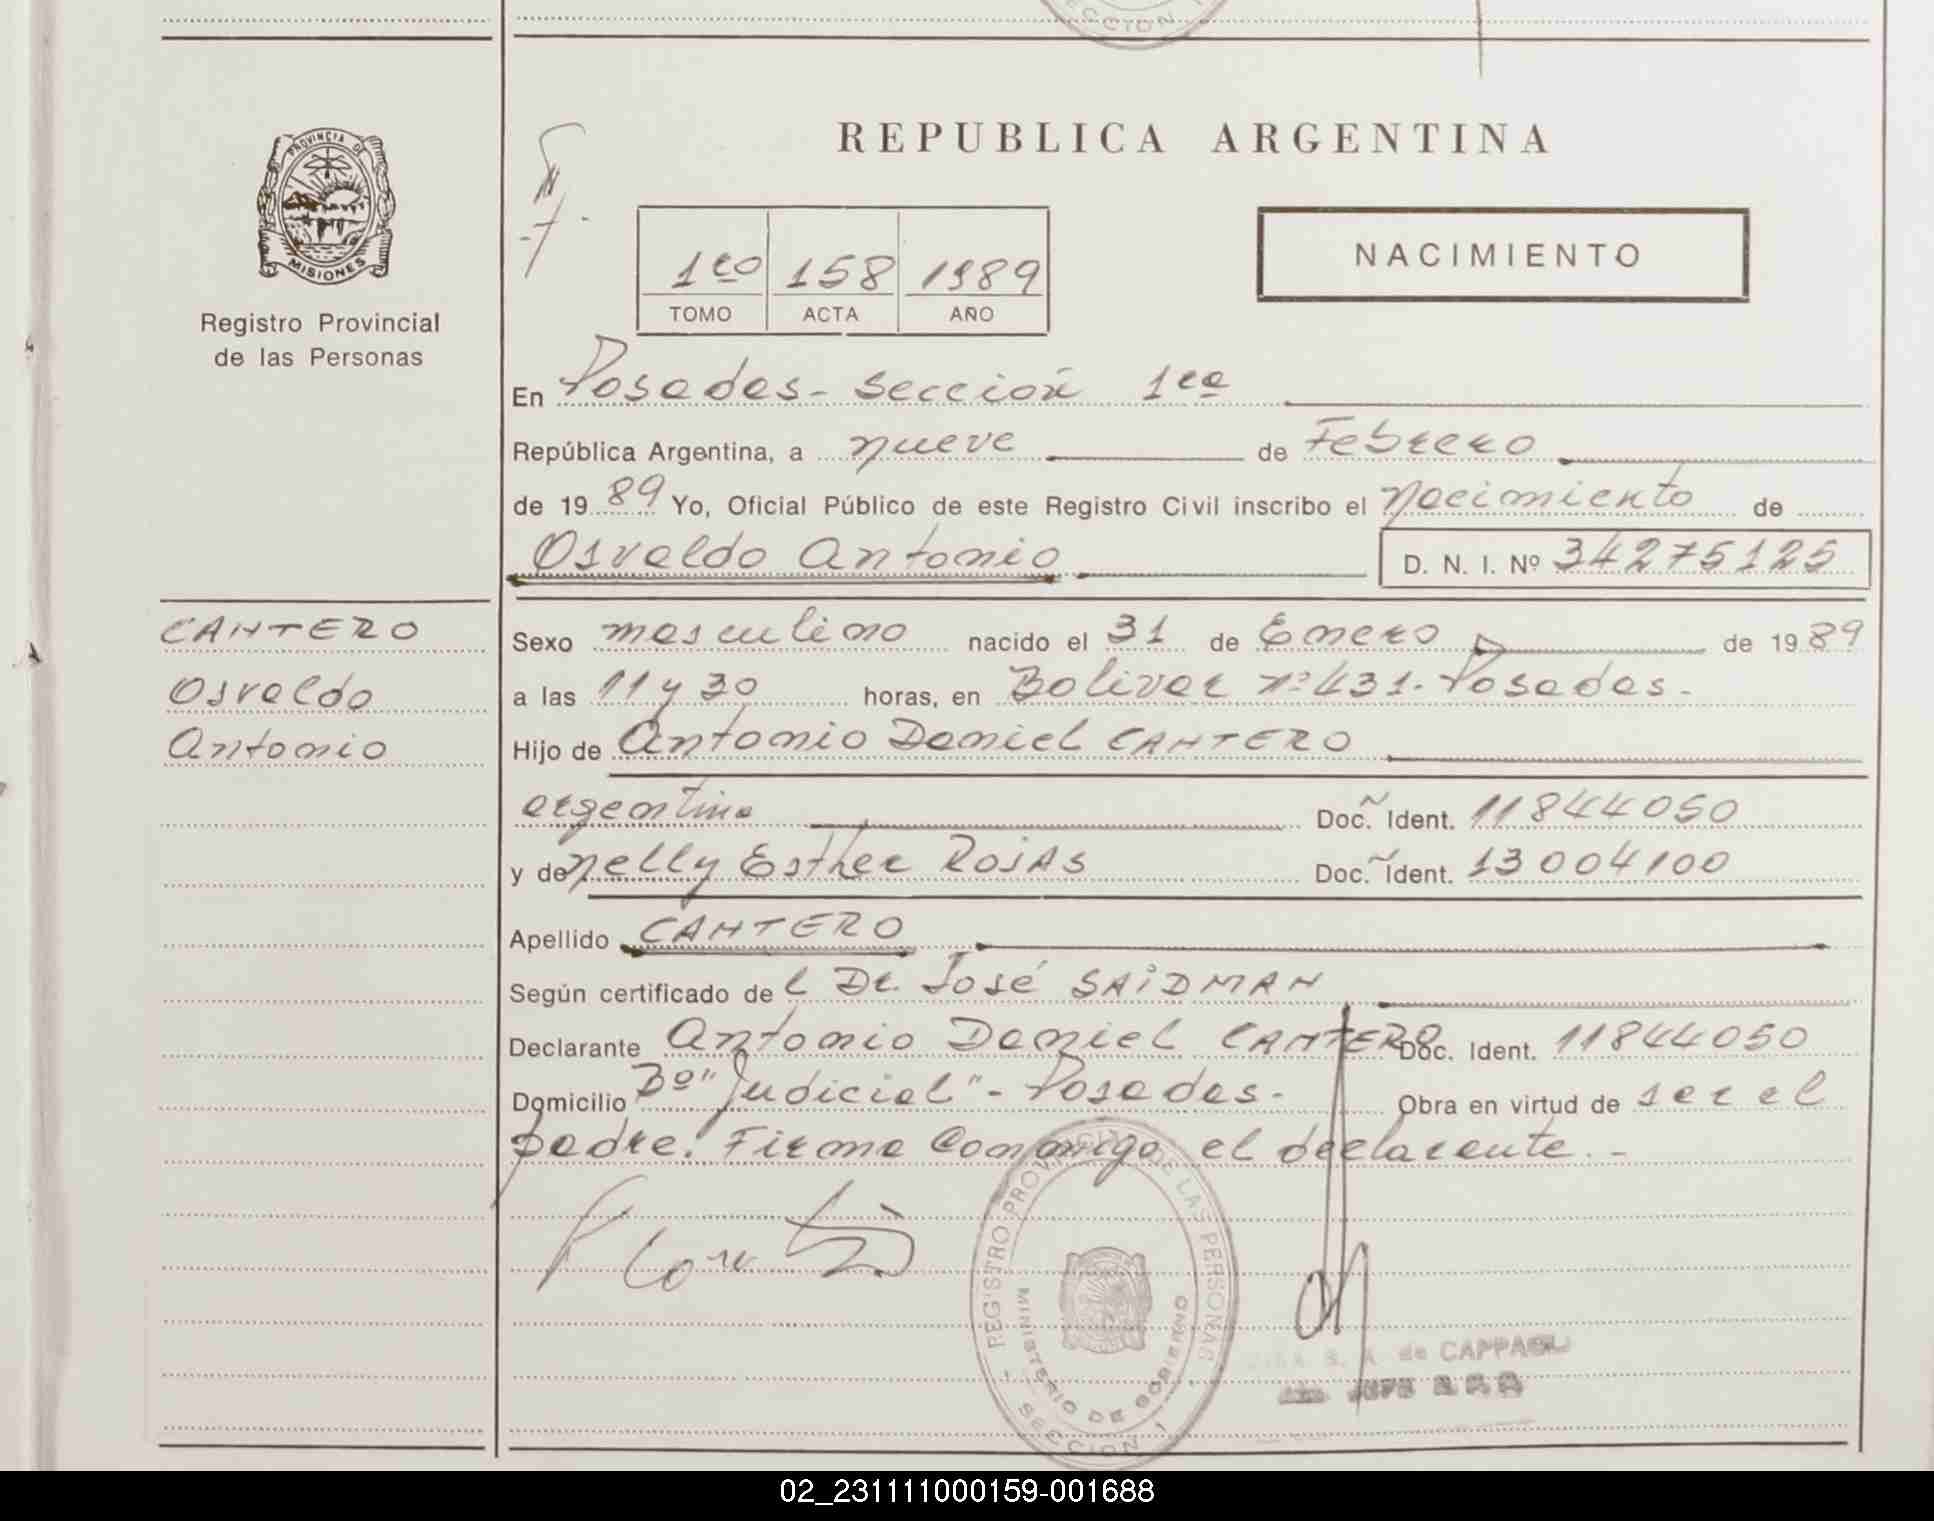 SECCION
PROVINCIA DE
MISIONES
Registro Provincial
de las Personas
REPUBLICA ARGENTINA
1ro 158 1989
TOMO ACTA AÑO
NACIMIENTO
En Posadas - sección 1ra
República Argentina, a nueve de Febrero
de 1989 Yo, Oficial Público de este Registro Civil inscribo el nacimiento de
Osvaldo Antonio D. N. I. Nº 34275125
CANTERO
Osvaldo
Antonio
Sexo masculino nacido el 31 de Enero de 1989
a las 11 y 30 horas, en Bolivar Nº 431. Posadas.-
Hijo de Antonio Daniel CANTERO
argentino Doc. Ident. 11844050
y de Nelly Esther ROJAS Doc. Ident. 13004100
Apellido CANTERO
Según certificado de l Dr. José SAIDMAN
Declarante Antonio Daniel CANTERO Doc. Ident. 11844050
Domicilio Bº "Judicial" - Posadas. Obra en virtud de ser el
padre. Firma Conmigo el declarante. -
REGISTRO PROVINCIAL DE LAS PERSONAS
MINISTERIO DE GOBIERNO
SECCION 1
de CAPPA
JEFE
02_231111000159-001688